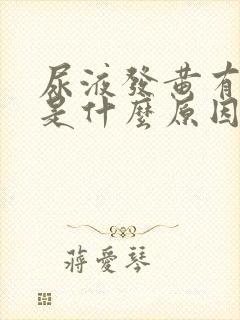 尿液發黄有
是什麼原因
蔣愛琴